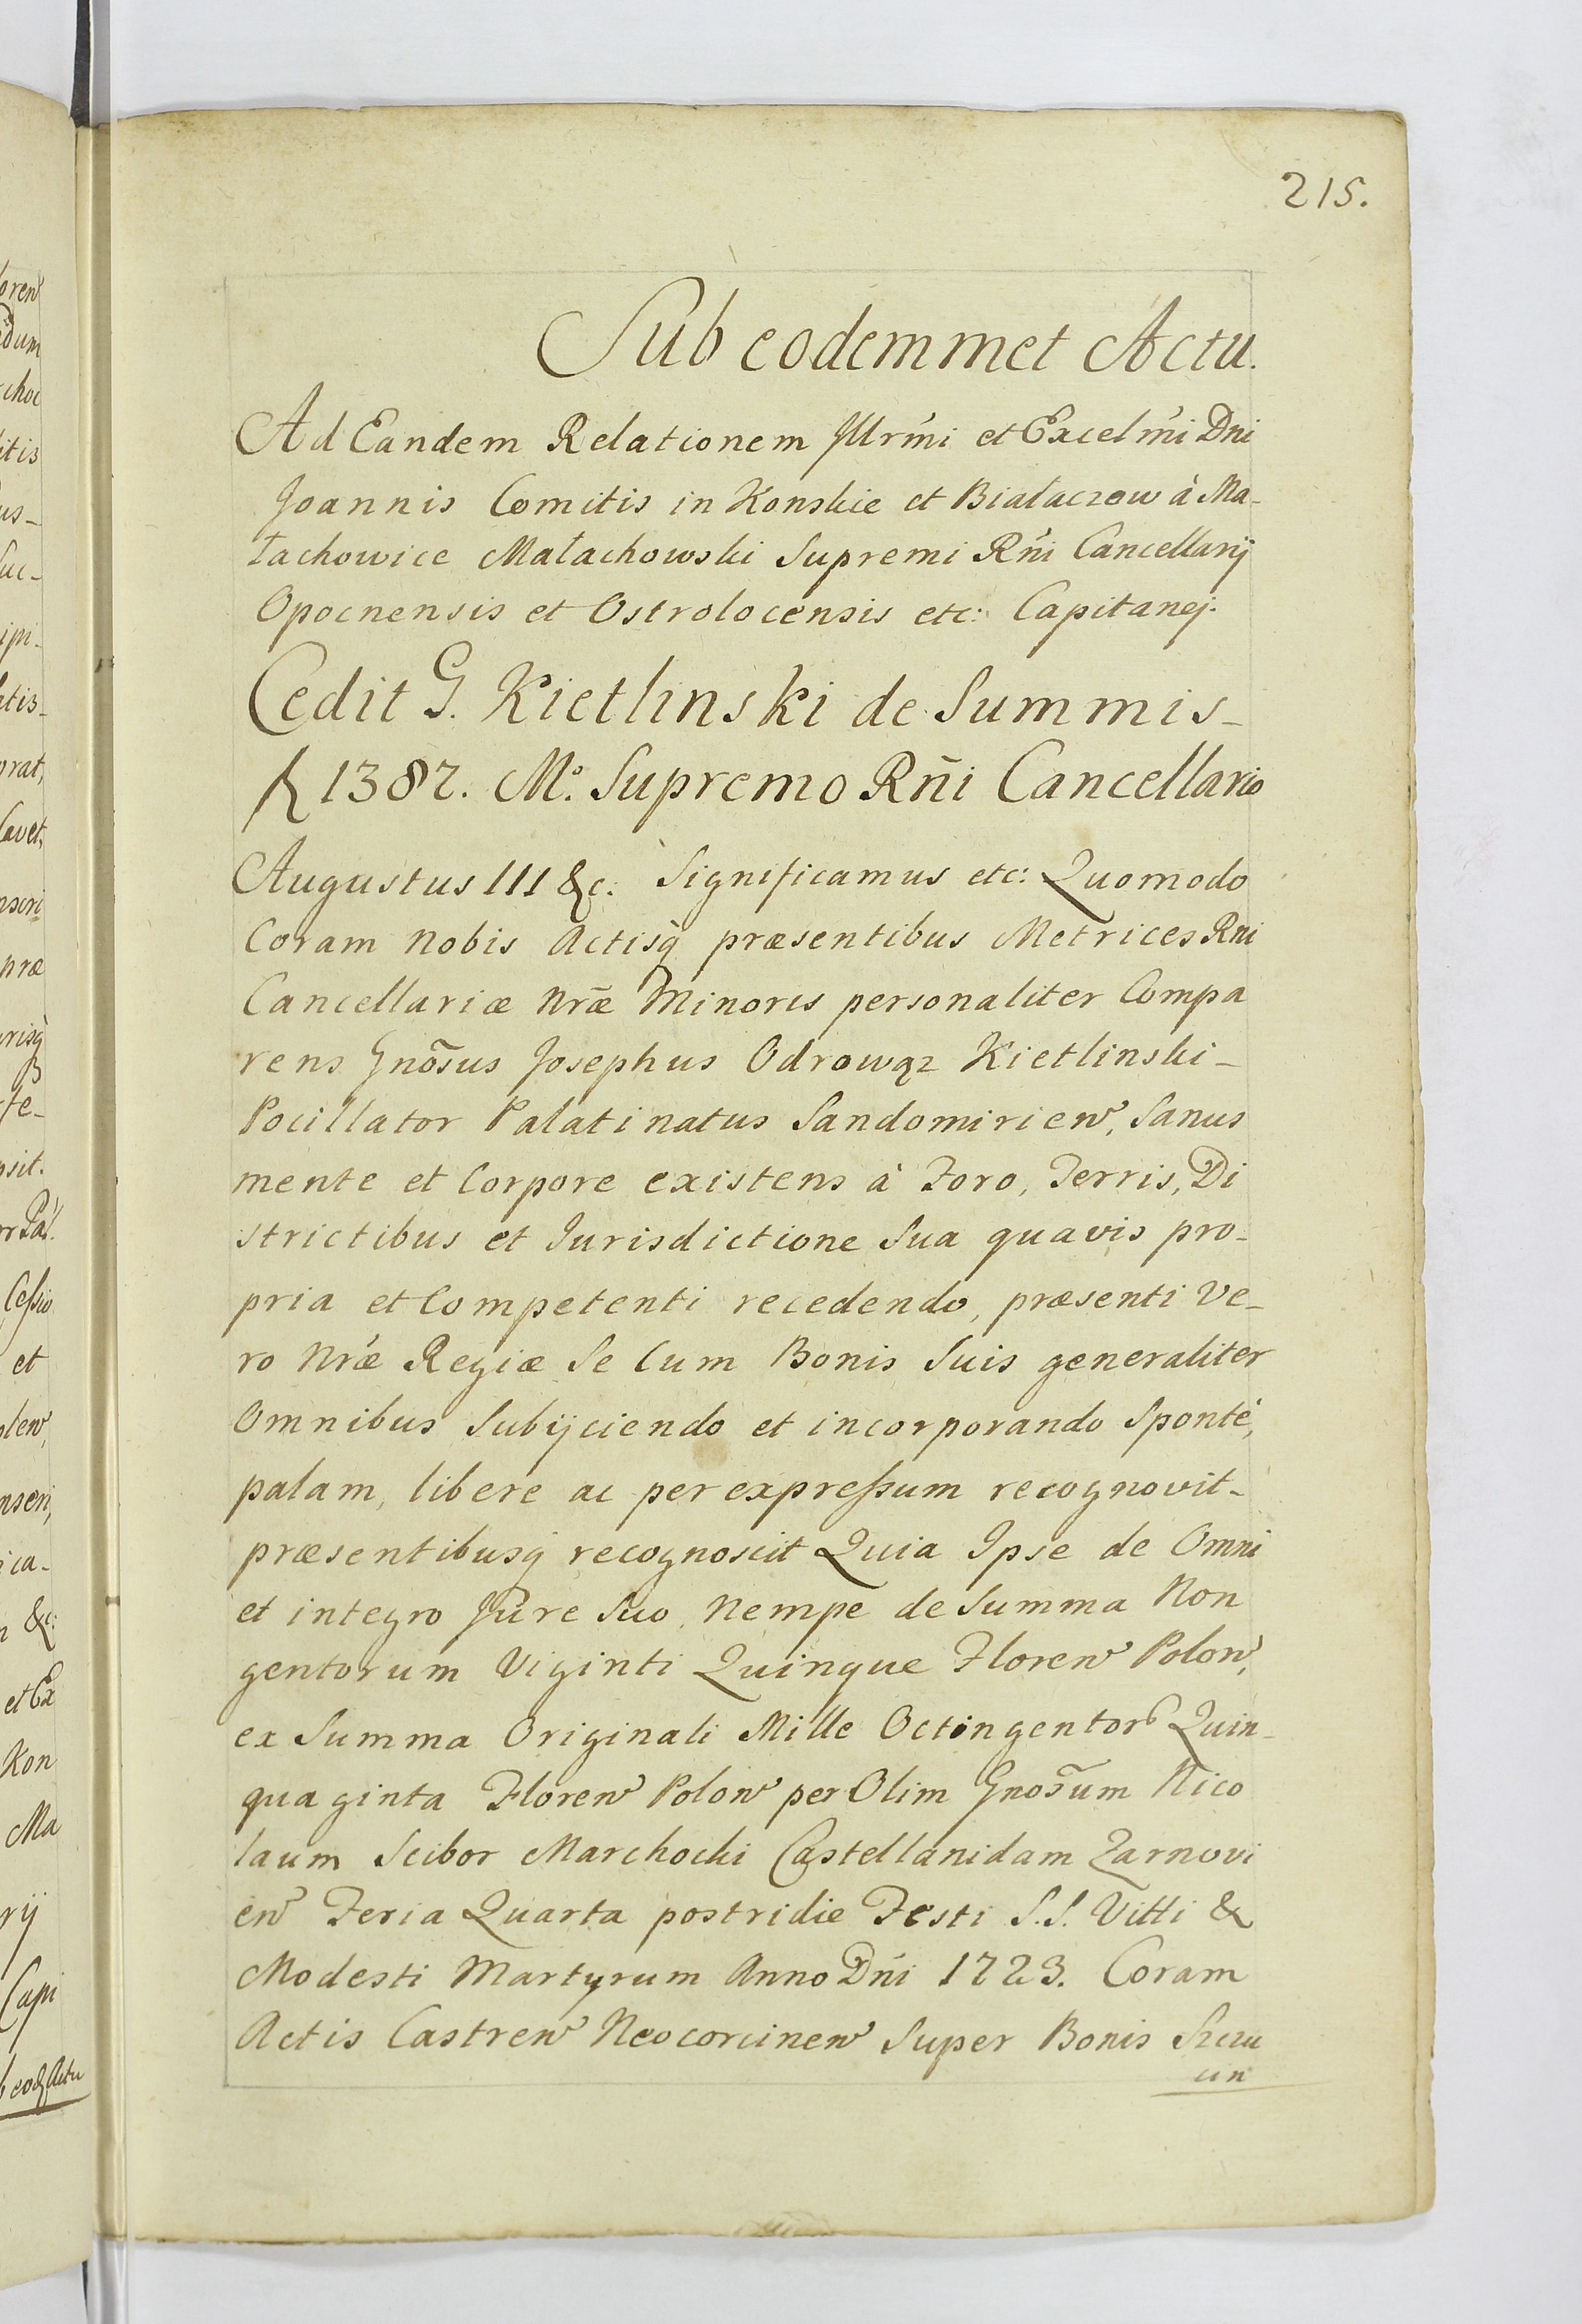 215.
Sub eodemmet Actu.
Ad Eandem Relationem Jllrm̃i et Excelm̃i Dni
Joannis Comitis in Konskie et Białaczow à Ma-
łachowice Małachowski Supremi Rñi Cancellarij
Opocnensis et Ostrolocensis etc: Capitanej.
Cedit G. Kietlinski de Summis-
1387. Mº. Supremo Rñi Cancellario
Augustus III &c. Significamus etc: Quomodo
Coram Nobis Actisq̀ præsentibus Metrices Rni
Cancellariæ Nræ̃ Minoris personaliter Compa
rens Gnõsus Josephus Odrowąz Kietlinski-
Pocillator Palatinatus Sandomirien, Sanus
mente et Corpore existens à Foro, Terris, Di
strictibus et Jurisdictione Sua quavis pro-
pria et Competenti recedendo, præsenti Ve-
ro Nræ̃ Regiæ Se Cum Bonis Suis generaliter
Omnibus Subijciendo et incorporando Sponté,
palam, libere ac per expreſsum recognovit-
præsentibusq̀ recognoscit Quia Ipse de Omni
et integro Jure Suo, Nempe de Summa Non
gentorum Viginti Quinque Floren Polon,
ex Summa Originali Mille Octingentor Quin-
quaginta Floren Polon per Olim Gnosũm Nico
laum Scibor Marchocki Castellanidam Zarnovi
en Feria Quarta postridie Festi S.S. Vitti &
Modesti Martyrum Anno Dñi 1723. Coram
Actis Castren Neocorcinen Super Bonis Szczu
cin
oren
dum
choc
itis
us-
Suc-
ipi-
tis-
orat,
Cavet,
nscri
præ
risq̀
fe-
sit.
Ceſsio
et
len,
nseri,
ica-
&c:
et Ex
Kon
Ma
rij
Capi
eodq Actu